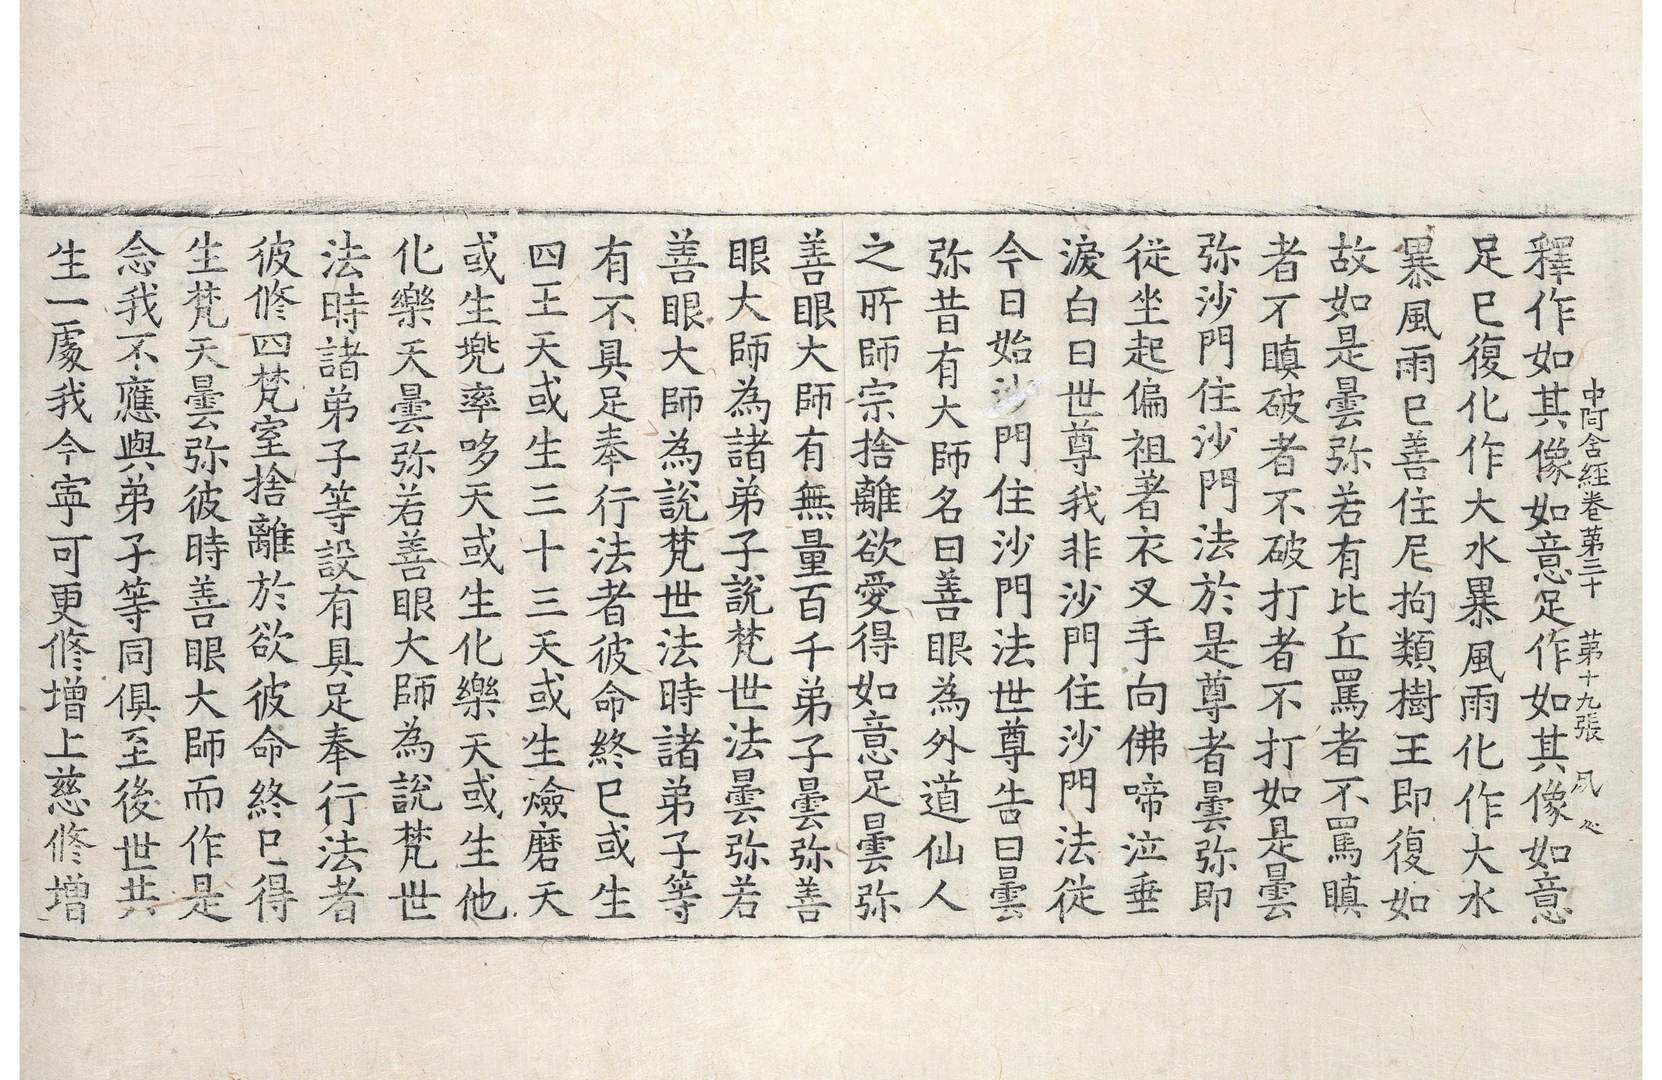 中阿含經卷第三十 第十九張 夙
釋作如其像如意足作如其像如意
足已復化作大水暴風雨化作大水
暴風雨已善住尼拘類樹王即復如
故如是曇弥若有比丘罵者不罵瞋
者不瞋破者不破打者不打如是曇
弥沙門住沙門法於是尊者曇弥即
從坐起偏袒著衣叉手向佛啼泣垂
淚白曰世尊我非沙門住沙門法從
今日始沙門住沙門法世尊告曰曇
弥昔有大師名曰善眼為外道仙人
之所師宗捨離欲愛得如意足曇弥
善眼大師有無量百千弟子曇弥善
眼大師為諸弟子說梵世法曇弥若
善眼大師為說梵世法時諸弟子等
有不具足奉行法者彼命終已或生
四王天或生三十三天或生㷿磨天
或生兜率哆天或生化樂天或生他
化樂天曇弥若善眼大師為說梵世
法時諸弟子等設有具足奉行法者
彼修四梵室捨離於欲彼命終已得
生梵天曇弥彼時善眼大師而作是
念我不應與弟子等同俱至後世共
生一處我今寧可更修增上慈修增